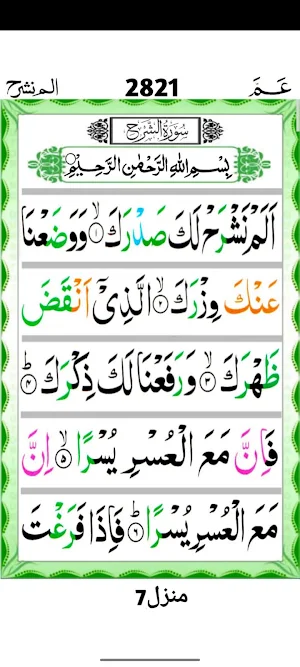 عَمَّ 2821 المنشرح
سُورَةُ الشَّرْحِ
بِسْمِ اللهِ الرَّحْمٰنِ الرَّحِيْمِ
اَلَمْ نَشْرَحْ لَكَ صَدْرَكَ ۙ‏﴿۱﴾ وَوَضَعْنَا
عَنْكَ وِزْرَكَ ۙ‏﴿۲﴾ الَّذِىْۤ اَنْقَضَ
ظَهْرَكَ ۙ‏﴿۳﴾ وَرَفَعْنَا لَكَ ذِكْرَكَ ؕ‏﴿۴﴾
فَاِنَّ مَعَ الْعُسْرِ يُسْرًا ۙ‏﴿۵﴾ اِنَّ
مَعَ الْعُسْرِ يُسْرًا ؕ‏﴿۶﴾ فَاِذَا فَرَغْتَ
منزل 7